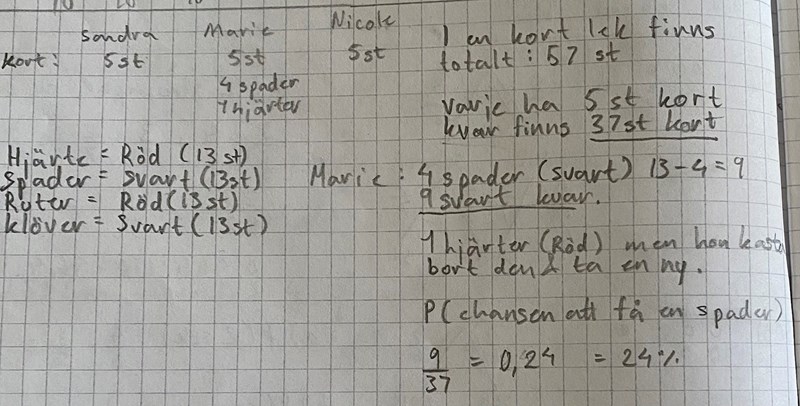 Sandra Marie Nicole
kort: 5st 5st 5st
4 spader
1 hjärter
I en kort lek finns
totalt: 52 st
varje ha 5 st kort
kvar finns 37st kort
Hjärte = Röd (13 st)
Spader = Svart (13st)
Ruter = Röd (13st)
klöver = Svart (13st)
Marie: 4 spader (svart) 13-4=9
9 svart kvar.
1 hjärter (Röd) men hon kasta
bort den & ta en ny.
P(chansen att få en spader)
9/37 = 0,24 = 24%